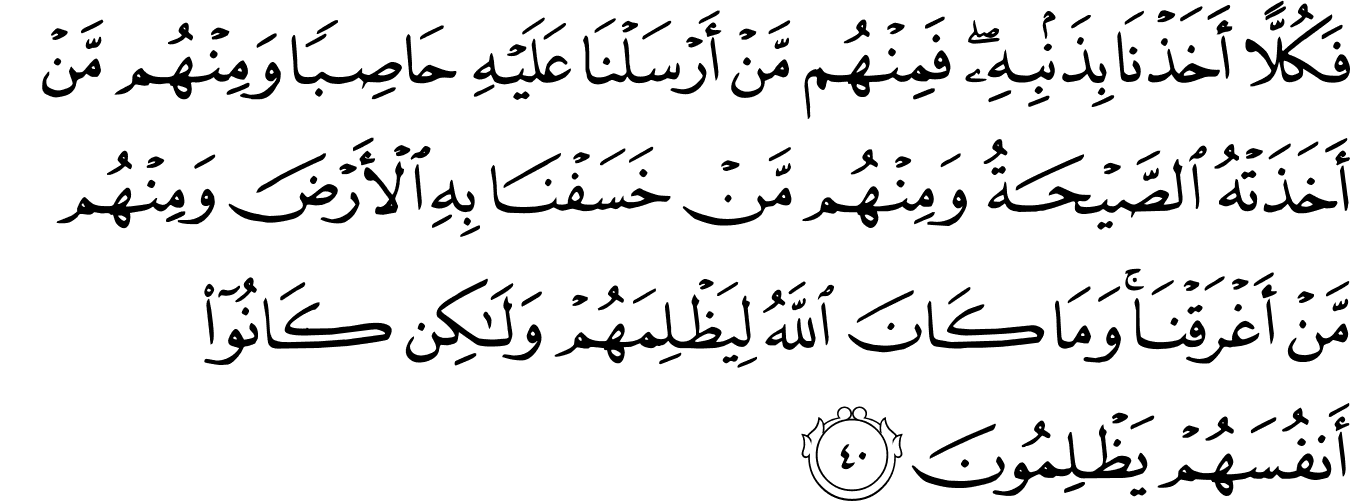 فَكُلًّا أَخَذْنَا بِذَنۢبِهِۦ ۖ فَمِنْهُم مَّنْ أَرْسَلْنَا عَلَيْهِ حَاصِبًا وَمِنْهُم مَّنْ
أَخَذَتْهُ ٱلصَّيْحَةُ وَمِنْهُم مَّنْ خَسَفْنَا بِهِ ٱلْأَرْضَ وَمِنْهُم
مَّنْ أَغْرَقْنَا ۚ وَمَا كَانَ ٱللَّهُ لِيَظْلِمَهُمْ وَلَـٰكِن كَانُوٓا۟
أَنفُسَهُمْ يَظْلِمُونَ ٤٠